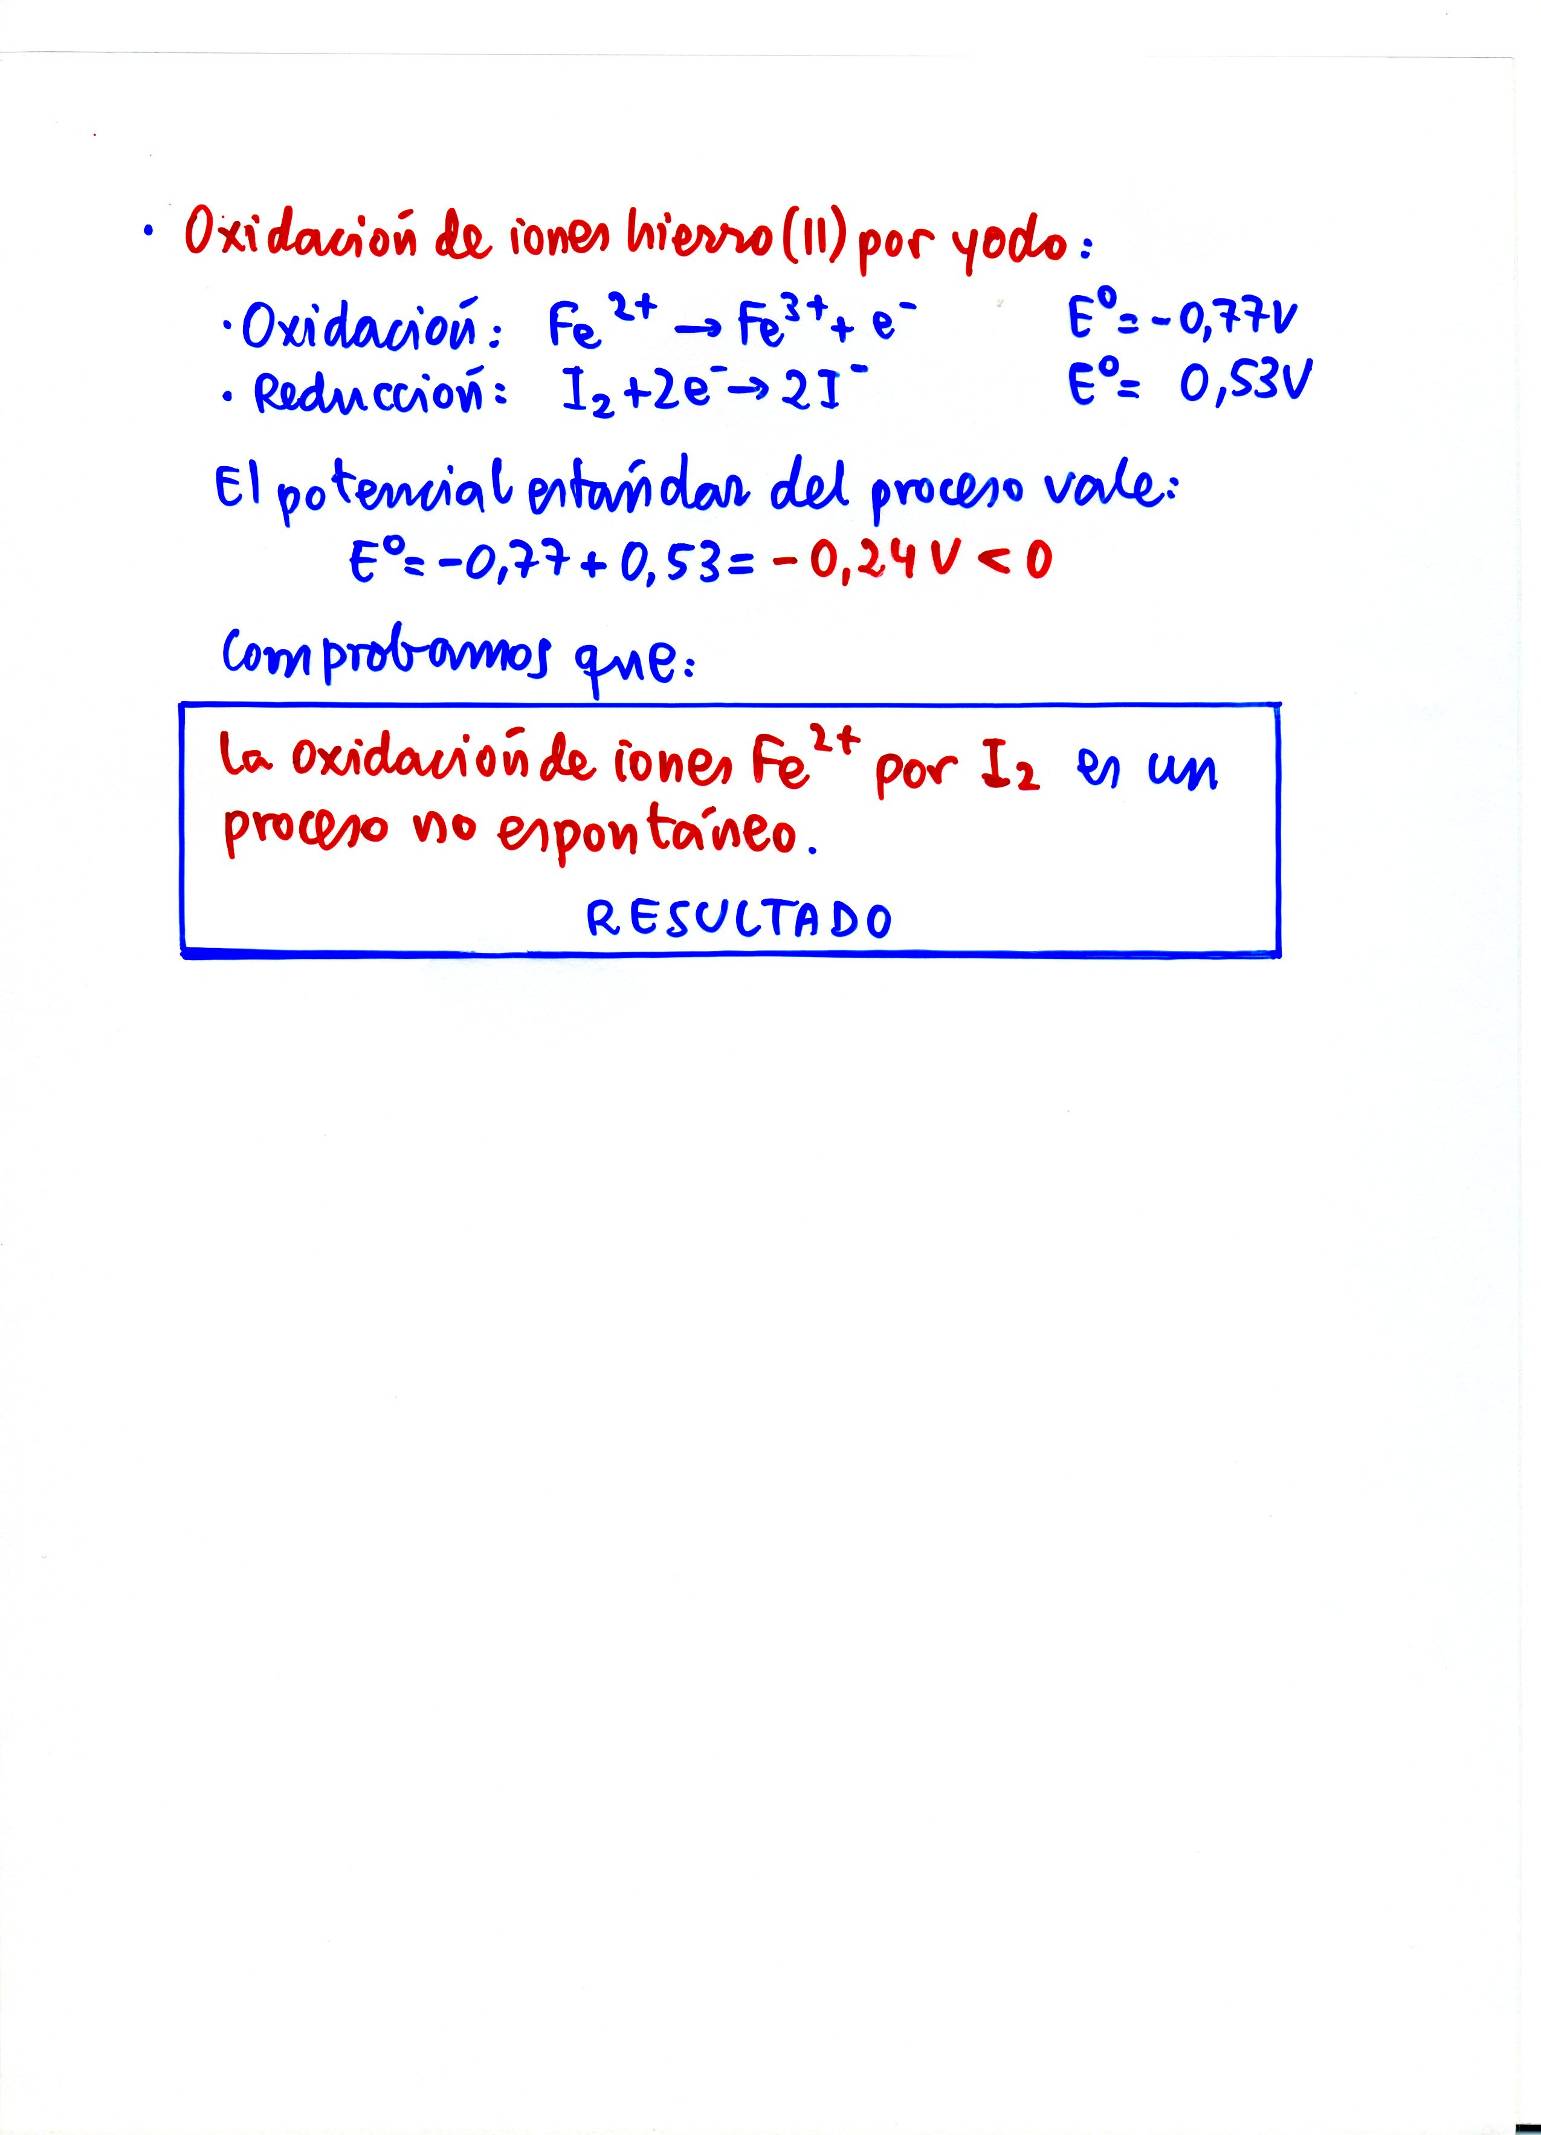 · Oxidación de iones hierro (II) por yodo:
· Oxidación: Fe²⁺ → Fe³⁺ + e⁻ E⁰ = -0,77V
· Reducción: I₂ + 2e⁻ → 2I⁻ E⁰ = 0,53V
El potencial estándar del proceso vale:
E⁰ = -0,77 + 0,53 = -0,24 V < 0
Comprobamos que:
La oxidación de iones Fe²⁺ por I₂ es un
proceso no espontáneo.
RESULTADO